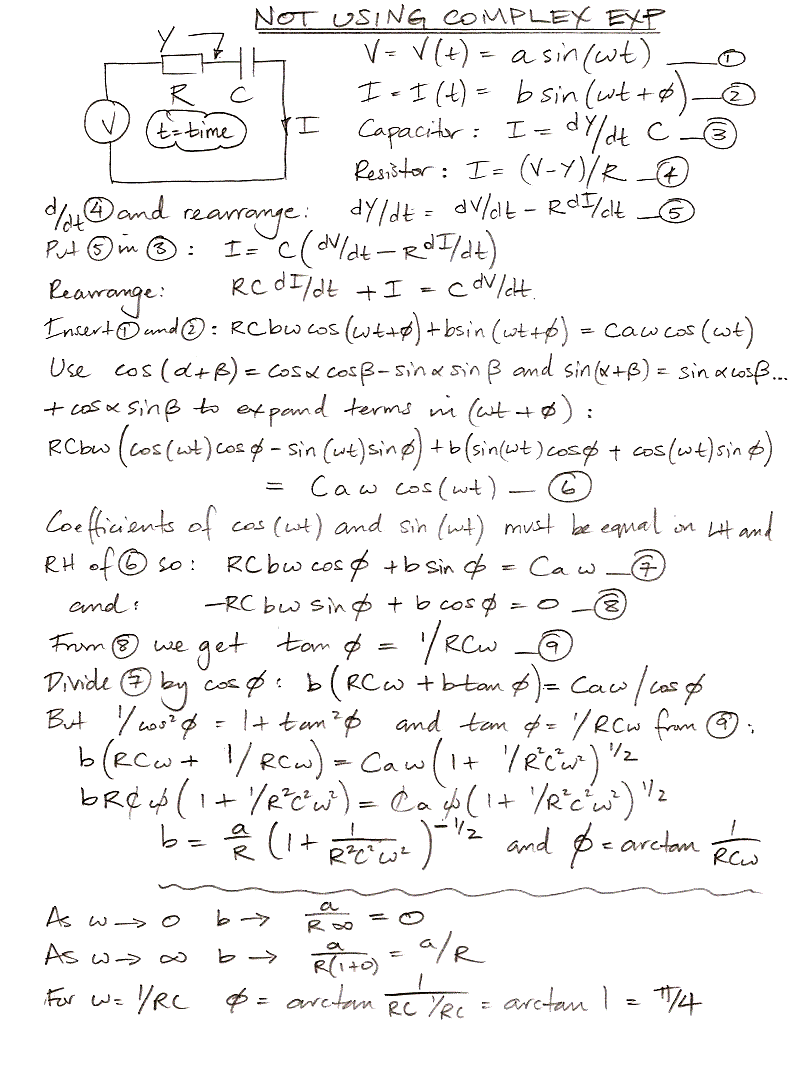 NOT USING COMPLEX EXP
Y
V = V(t) = a sin(ωt) ①
R C
I = I(t) = b sin(ωt + ϕ) ②
V t = time I
Capacitor: I = dY/dt C ③
Resistor: I = (V-Y)/R ④
d/dt ④ and rearrange: dY/dt = dV/dt - R dI/dt ⑤
Put ⑤ in ③: I = C(dV/dt - R dI/dt)
Rearrange: RC dI/dt + I = C dV/dt.
Insert ① and ②: RCbω cos(ωt+ϕ) + b sin(ωt+ϕ) = Caω cos(ωt)
Use cos(α+β) = cosα cosβ - sinα sinβ and sin(α+β) = sinα cosβ...
+ cosα sinβ to expand terms in (ωt + ϕ):
RCbω (cos(ωt)cosϕ - sin(ωt)sinϕ) + b(sin(ωt)cosϕ + cos(ωt)sinϕ)
= Caω cos(ωt) — ⑥
Coefficients of cos(ωt) and sin(ωt) must be equal on LH and
RH of ⑥ so: RCbω cosϕ + b sinϕ = Caω — ⑦
and: -RCbω sinϕ + b cosϕ = 0 — ⑧
From ⑧ we get tan ϕ = 1/RCω — ⑨
Divide ⑦ by cosϕ: b(RCω + b tan ϕ) = Caω/cosϕ
But 1/cos²ϕ = 1 + tan²ϕ and tan ϕ = 1/RCω from ⑨:
b(RCω + 1/RCω) = Caω(1 + 1/R²C²ω²)^1/2
bRCω(1 + 1/R²C²ω²) = Caω(1 + 1/R²C²ω²)^1/2
b = a/R (1 + 1/R²C²ω²)^-1/2 and ϕ = arctan 1/RCω
As ω → 0 b → a/R∞ = 0
As ω → ∞ b → a/R(1+0) = a/R
For ω = 1/RC ϕ = arctan 1/RC 1/RC = arctan 1 = π/4